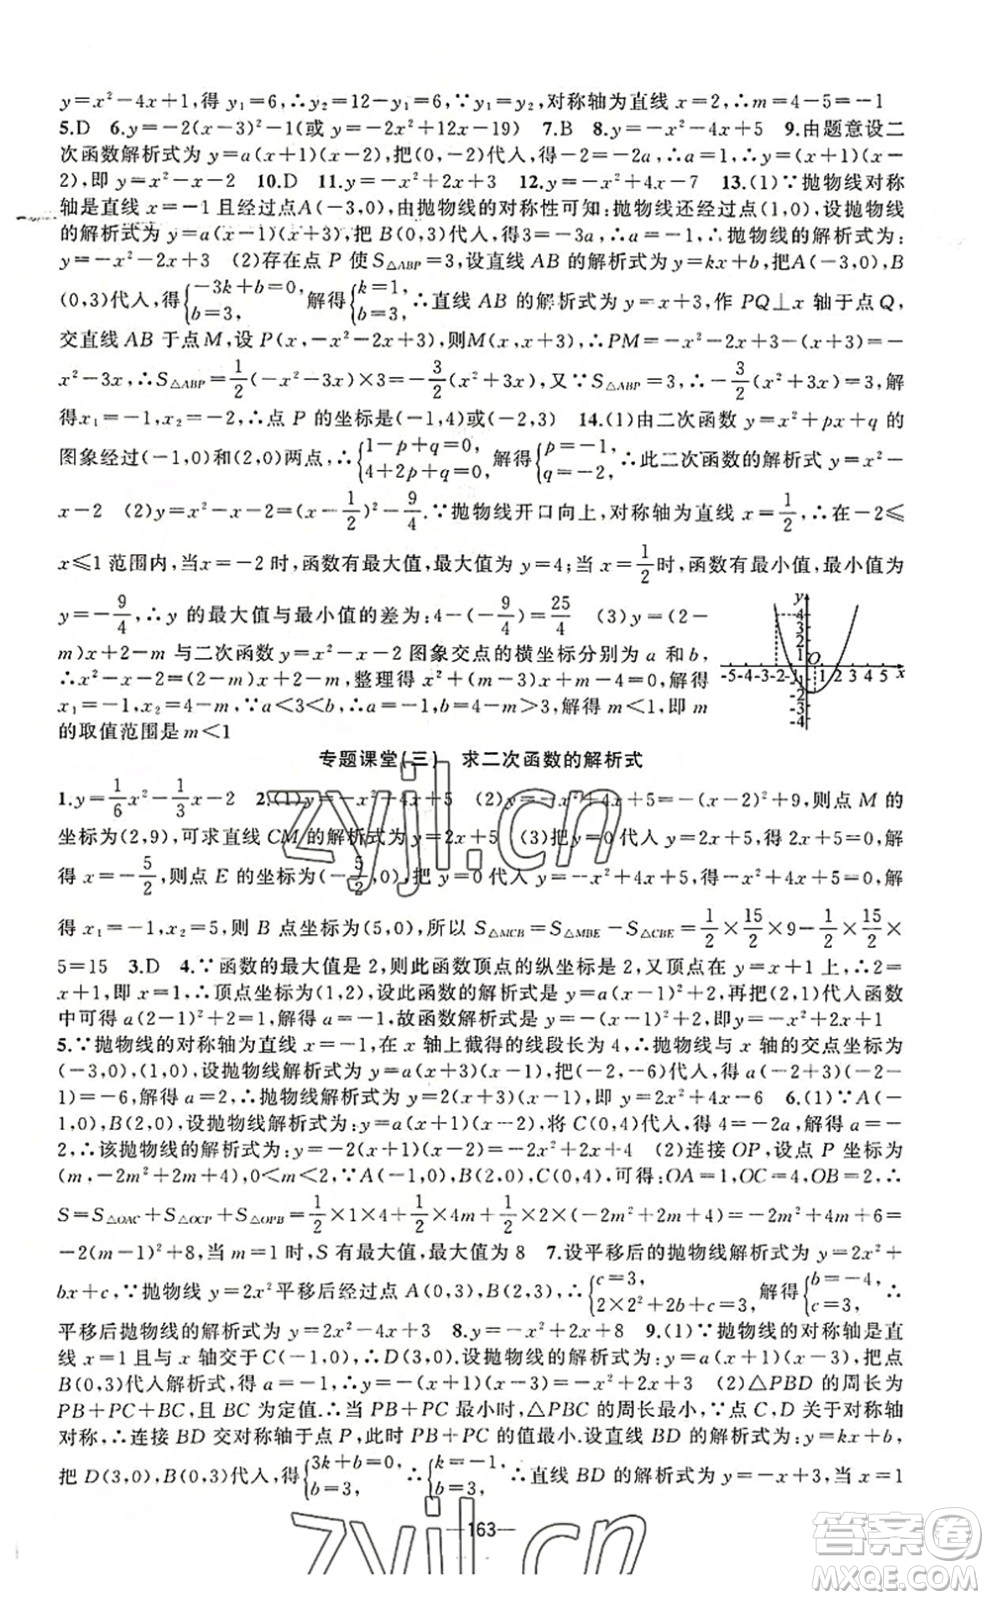 y=x²-4x+1,得 y₁=6,∴y₂=12-y₁=6,∵y₁=y₂,对称轴为直线 x=2,∴m=4-5=-1
5.D 6.y=-2(x-3)²-1(或 y=-2x²+12x-19) 7.B 8.y=-x²-4x+5 9.由题意设二
次函数解析式为 y=a(x+1)(x-2),把(0,-2)代人,得-2=-2a,∴a=1,∴y=(x+1)(x-
2),即 y=x²-x-2 10.D 11.y=-x²+2x+3 12.y=-x²+4x-7 13.(1)∵抛物线对称
轴是直线 x=-1 且经过点A(-3,0),由抛物线的对称性可知:抛物线还经过点(1,0),设抛物线
的解析式为 y=a(x-1)(x+3),把 B(0,3)代人,得3=-3a,∴a=-1,∴抛物线的解析式为:
y=-x²-2x+3 (2)存在点 P 使 S△ABP=3,设直线 AB 的解析式为 y=kx+b,把A(-3,0),B
(0,3)代人,得{-3k+b=0, b=3, 解得{k=1, b=3, ∴直线 AB 的解析式为 y=x+3,作 PQ⊥x 轴于点 Q,
交直线 AB 于点 M,设 P(x,-x²-2x+3),则M(x,x+3),∴PM=-x²-2x+3-(x+3)=-
x²-3x,∴S△ABP=1/2(-x²-3x)×3=-3/2(x²+3x),又∵S△ABP=3,∴-3/2(x²+3x)=3,解
得x₁=-1,x₂=-2,∴点 P 的坐标是(-1,4)或(-2,3) 14.(1)由二次函数 y=x²+px+q 的
图象经过(-1,0)和(2,0)两点,∴{1-p+q=0, 4+2p+q=0, 解得{p=-1, q=-2, ∴此二次函数的解析式 y=x²-
x-2 (2)y=x²-x-2=(x-1/2)²-9/4.∵抛物线开口向上,对称轴为直线 x=1/2,∴在-2≤
x≤1 范围内,当x=-2 时,函数有最大值,最大值为 y=4;当 x=1/2时,函数有最小值,最小值为
y=-9/4,∴y 的最大值与最小值的差为:4-(-9/4)=25/4 (3)y=(2-
m)x+2-m 与二次函数 y=x²-x-2 图象交点的横坐标分别为 a 和 b,
∴x²-x-2=(2-m)x+2-m,整理得 x²+(m-3)x+m-4=0,解得
x₁=-1,x₂=4-m,∵a<3<b,∴a=-1,b=4-m>3,解得 m<1,即 m
的取值范围是 m<1
y
4
3
2
1
O
-5-4-3-2 1 2 3 4 5 x
-2
-3
-4
专题课堂(三) 求二次函数的解析式
1.y=1/6x²-1/3x-2 2.(1)y=-x²+4x+5 (2)y=-x²+4x+5=-(x-2)²+9,则点 M 的
坐标为(2,9),可求直线 CM 的解析式为 y=2x+5 (3)把 y=0 代人 y=2x+5,得 2x+5=0,解
得 x=-5/2,则点 E 的坐标为(-5/2,0),把 y=0 代入 y=-x²+4x+5,得-x²+4x+5=0,解
得 x₁=-1,x₂=5,则 B 点坐标为(5,0),所以 S△MCB=S△MBE-S△CBE=1/2×15/2×9-1/2×15/2×
5=15 3.D 4.∵函数的最大值是 2,则此函数顶点的纵坐标是 2,又顶点在 y=x+1 上,∴2=
x+1,即 x=1,∴顶点坐标为(1,2),设此函数的解析式是 y=a(x-1)²+2,再把(2,1)代人函数
中可得 a(2-1)²+2=1,解得 a=-1,故函数解析式是 y=-(x-1)²+2,即y=-x²+2x+1
5.∵抛物线的对称轴为直线 x=-1,在 x 轴上截得的线段长为 4,∴抛物线与 x 轴的交点坐标为
(-3,0),(1,0),设抛物线解析式为 y=a(x+3)(x-1),把(-2,-6)代人,得 a(-2+3)(-2-
1)=-6,解得 a=2,∴抛物线解析式为 y=2(x+3)(x-1),即 y=2x²+4x-6 6.(1)∵A(-
1,0),B(2,0),设抛物线的解析式为:y=a(x+1)(x-2),将 C(0,4)代入,得 4=-2a,解得 a=-
2,∴该抛物线的解析式为:y=-2(x+1)(x-2)=-2x²+2x+4 (2)连接 OP,设点 P 坐标为
(m,-2m²+2m+4),0<m<2,∵A(-1,0),B(2,0),C(0,4),可得:OA=1,OC=4,OB=2,∴
S=S△OAC+S△OCP+S△OPB=1/2×1×4+1/2×4m+1/2×2×(-2m²+2m+4)=-2m²+4m+6=
-2(m-1)²+8,当 m=1 时,S 有最大值,最大值为 8 7.设平移后的抛物线解析式为 y=2x²+
bx+c,∵抛物线 y=2x²平移后经过点 A(0,3),B(2,3),∴{c=3, 2×2²+2b+c=3, 解得{b=-4, c=3, ∴
平移后抛物线的解析式为 y=2x²-4x+3 8.y=-2x²+2x+8 9.(1)∵抛物线的对称轴是直
线 x=1 且与 x 轴交于C(-1,0),∴D(3,0).设抛物线的解析式为:y=a(x+1)(x-3),把点
B(0,3)代人解析式,得 a=-1,∴y=-(x+1)(x-3)=-x²+2x+3 (2)△PBD 的周长为
PB+PC+BC,且 BC 为定值.∴当 PB+PC 最小时,△PBC 的周长最小.∵点 C,D 关于对称轴
对称,∴连接 BD 交对称轴于点 P,此时 PB+PC 的值最小.设直线 BD 的解析式为:y=kx+b,
把 D(3,0),B(0,3)代人,得{3k+b=0, b=3, ∴{k=-1, b=3, ∴直线 BD 的解析式为 y=-x+3,当 x=1
—163—
zyjl.cn
zyjl.cn
答案圈
MXQE.COM